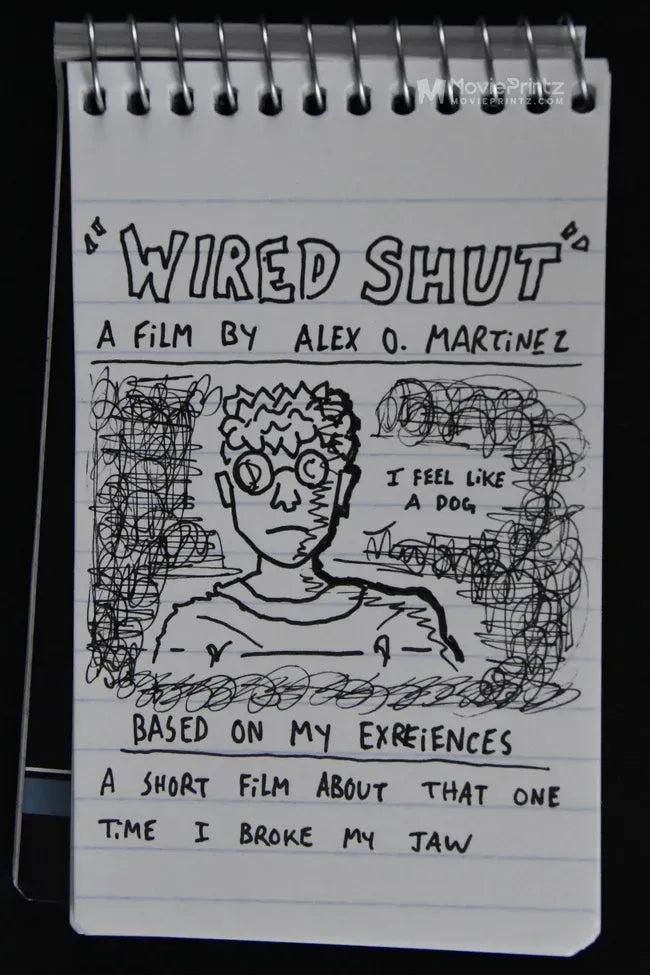 MoviePrintz
MOVIEPRINTZ.COM
"WIRED SHUT"
A FiLM BY ALEX O. MARTiNEZ
I FEEL LiKE
A DOG
BASED ON MY EXREiENCES
A SHORT FiLM ABOUT THAT ONE
TiME I BROKE MY JAW